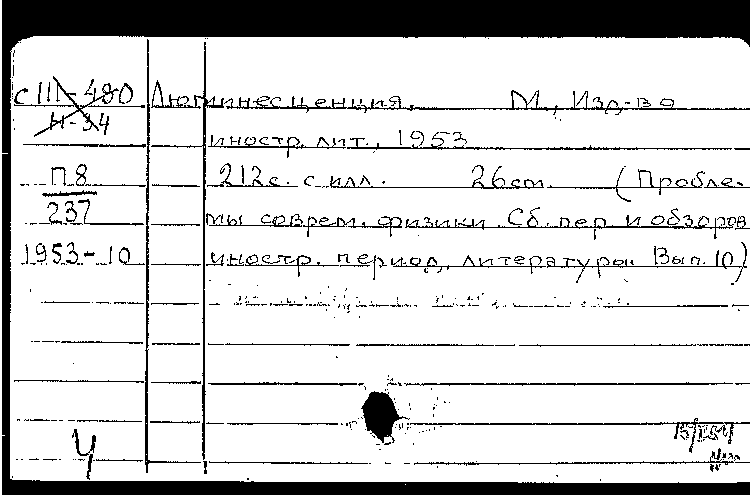 с III-480 Люминесценция. М., Изд-во
Н-34 иностр. лит., 1953
П8 212с. с илл. 26см. (Пробле-
237 мы соврем. физики. Сб. пер. и обзоров
1953-10 иностр. период. литературы. Вып. 10)
Ч